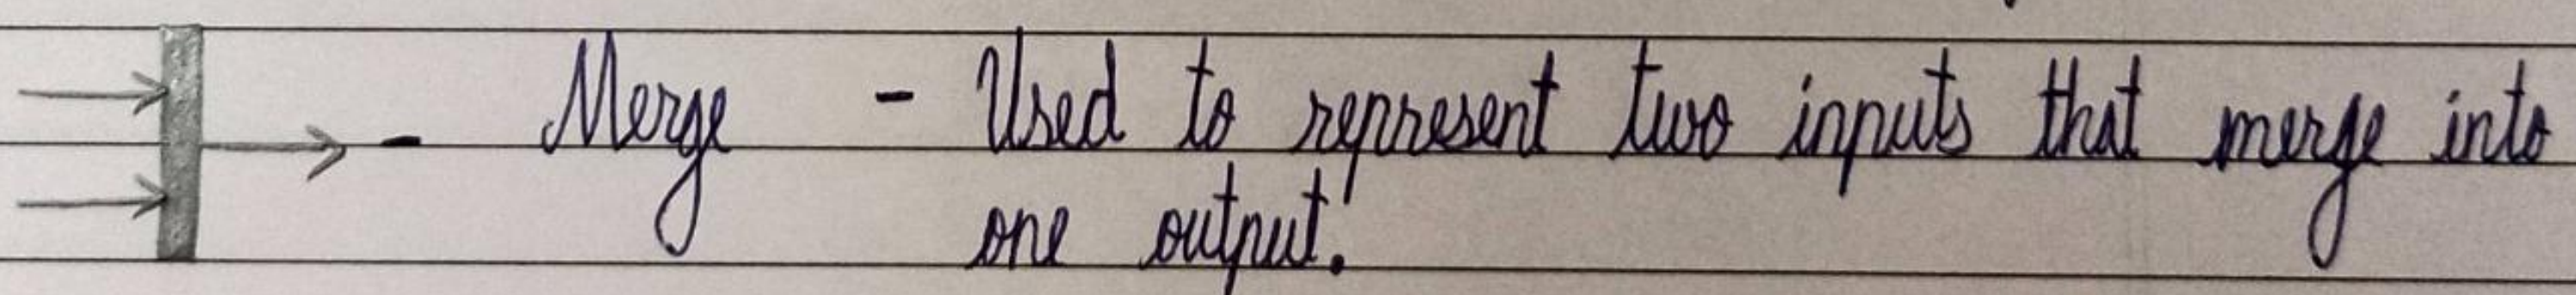 - Merge - Used to represent two inputs that merge into
one output.